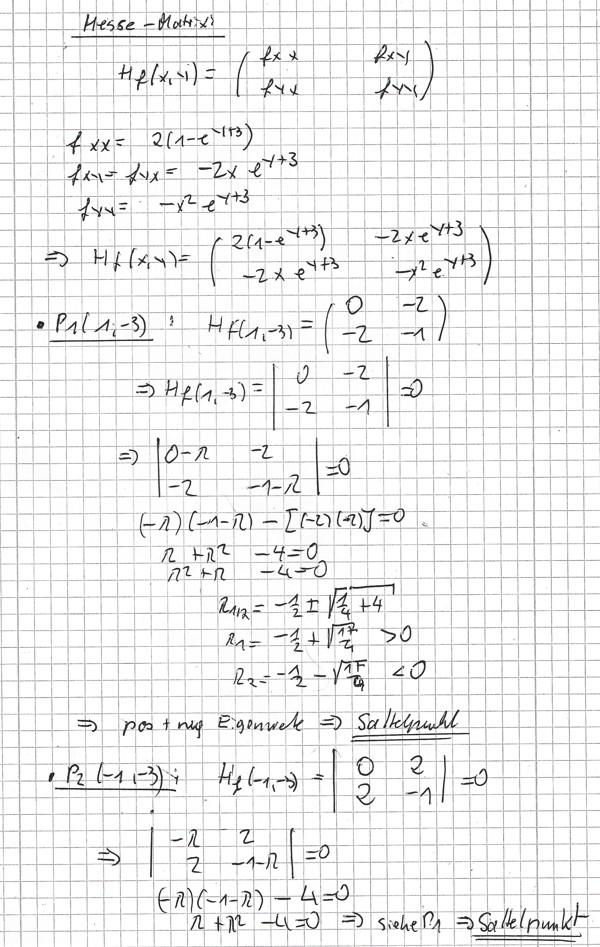 Hesse-Matrix:
Hf(x,y) = ( fxx fxy
fyx fyy )
fxx = 2(1-e^y+3)
fxy = fyx = -2x e^y+3
fyy = -x² e^y+3
=> Hf(x,y) = ( 2(1-e^y+3) -2xe^y+3
-2x e^y+3 -x² e^y+3 )
• P1(1,-3) : Hf(1,-3) = ( 0 -2
-2 -1 )
=> Hf(1,-3) = | 0 -2 | = 0
| -2 -1 |
=> | 0-λ -2 | = 0
| -2 -1-λ |
(-λ)(-1-λ) - [(-2)(-2)] = 0
λ + λ² - 4 = 0
λ² + λ - 4 = 0
λ1/2 = -1/2 ± √(1/4 + 4)
λ1 = -1/2 + √(17/4) > 0
λ2 = -1/2 - √(17/4) < 0
=> pos + neg Eigenwerte => Sattelpunkt
• P2(-1,-3) : Hf(-1,-3) = | 0 2 | = 0
| 2 -1 |
=> | -λ 2 | = 0
| 2 -1-λ |
(-λ)(-1-λ) - 4 = 0
λ + λ² - 4 = 0 => siehe P1 => Sattelpunkt